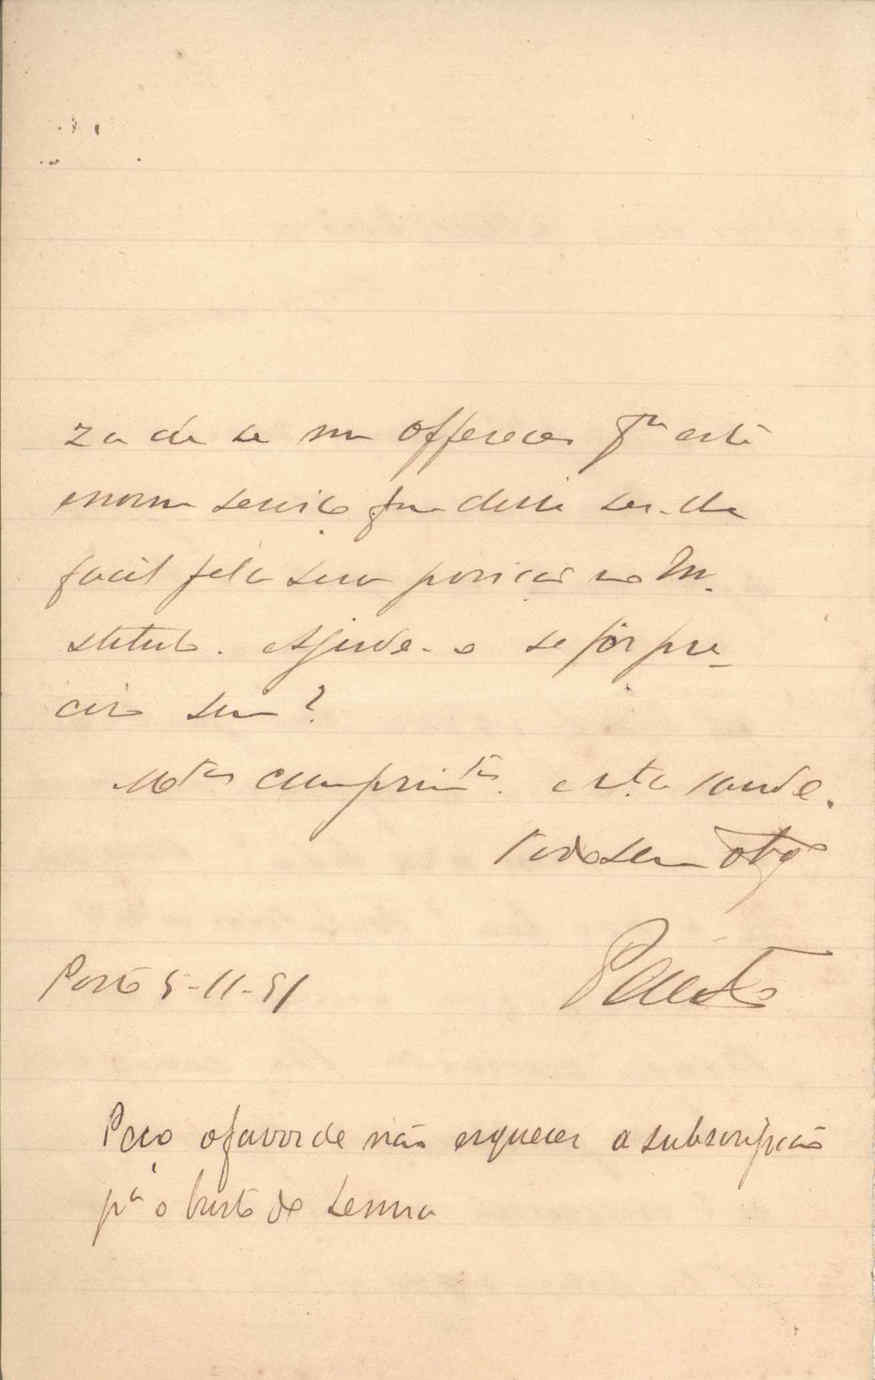 za de se me offerecer pª este
enorme serviço que deve ser-lhe
facil pela sua posição no In-
stituto. Ajude-o se fôr pre-
ciso sim?
Mtas cumprimtos e mta saude.
Todo seu obgo
Porto 5-11-91
Peço o favor de não esquecer a subscripção
pª o busto de